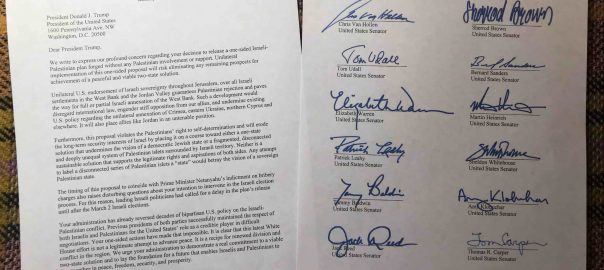 President Donald J. Trump
President of the United States
1600 Pennsylvania Ave. NW
Washington, D.C. 20500
Dear President Trump,
We write to express our profound concern regarding your decision to release a one-sided Israeli-
Palestinian plan forged without any Palestinian involvement or support. Unilateral
implementation of this one-sided proposal will risk eliminating any remaining prospects for
achievement of a peaceful and viable two-state solution.
Unilateral U.S. endorsement of Israeli sovereignty throughout Jerusalem, over all Israeli
settlements in the West Bank and the Jordan Valley guarantees Palestinian rejection and paves
the way for full or partial Israeli annexation of the West Bank. Such a development would
disregard international law, engender stiff opposition from our allies, and undermine existing
U.S. policy regarding the unlawful annexation of Crimea, eastern Ukraine, northern Cyprus and
elsewhere. It will also place allies like Jordan in an untenable position.
Furthermore, this proposal violates the Palestinians' right to self-determination and will erode
the long-term security interests of Israel by placing it on a course toward either a one-state
solution that undermines the vision of a democratic Jewish state or a fragmented, disconnected
and deeply unequal system of Palestinian islands surrounded by Israeli territory. Neither is a
sustainable solution that supports the legitimate rights and aspirations of both sides. Any attempt
to label a disconnected series of Palestinian islands a "state" would betray the vision of a sovereign
Palestinian state.
The timing of this proposal to coincide with Prime Minister Netanyahu's indictment on bribery
charges also raises disturbing questions about your intention to intervene in the Israeli election
process. For this reason, leading Israeli politicians had called for a delay in the plan's release
until after the March 2 Israeli election.
Your administration has already reversed decades of bipartisan U.S. policy on the Israeli-
Palestinian conflict. Previous presidents of both parties successfully maintained the respect of
both Israelis and Palestinians for the United States' role as a credible player in difficult
negotiations. Your one-sided actions have made that impossible. It is clear that this latest White
House effort is not a legitimate attempt to advance peace. It is a recipe for renewed division and
conflict in the region. We urge your administration to demonstrate a real commitment to a viable
two-state solution and to lay the foundation for a future that enables Israelis and Palestinians to
peace, freedom, security, and prosperity.
Chris Van Hollen
United States Senator
Sherrod Brown
Sherrod Brown
United States Senator
Tom Udall
Tom Udall
United States Senator
Bernard Sanders
United States Senator
Elizabeth Warren
Elizabeth Warren
United States Senator
United States Senator
Patrick Leahy
Patrick Leahy
United States Senator
Sheldon Whitehouse
United States Senator
Tammy Baldwin
United States Senator
Amy Klobuchar
United States Senator
Jack Reed
Jack Reed
United States Senator
Tom Carper
Thomas R. Carper
United States Senator